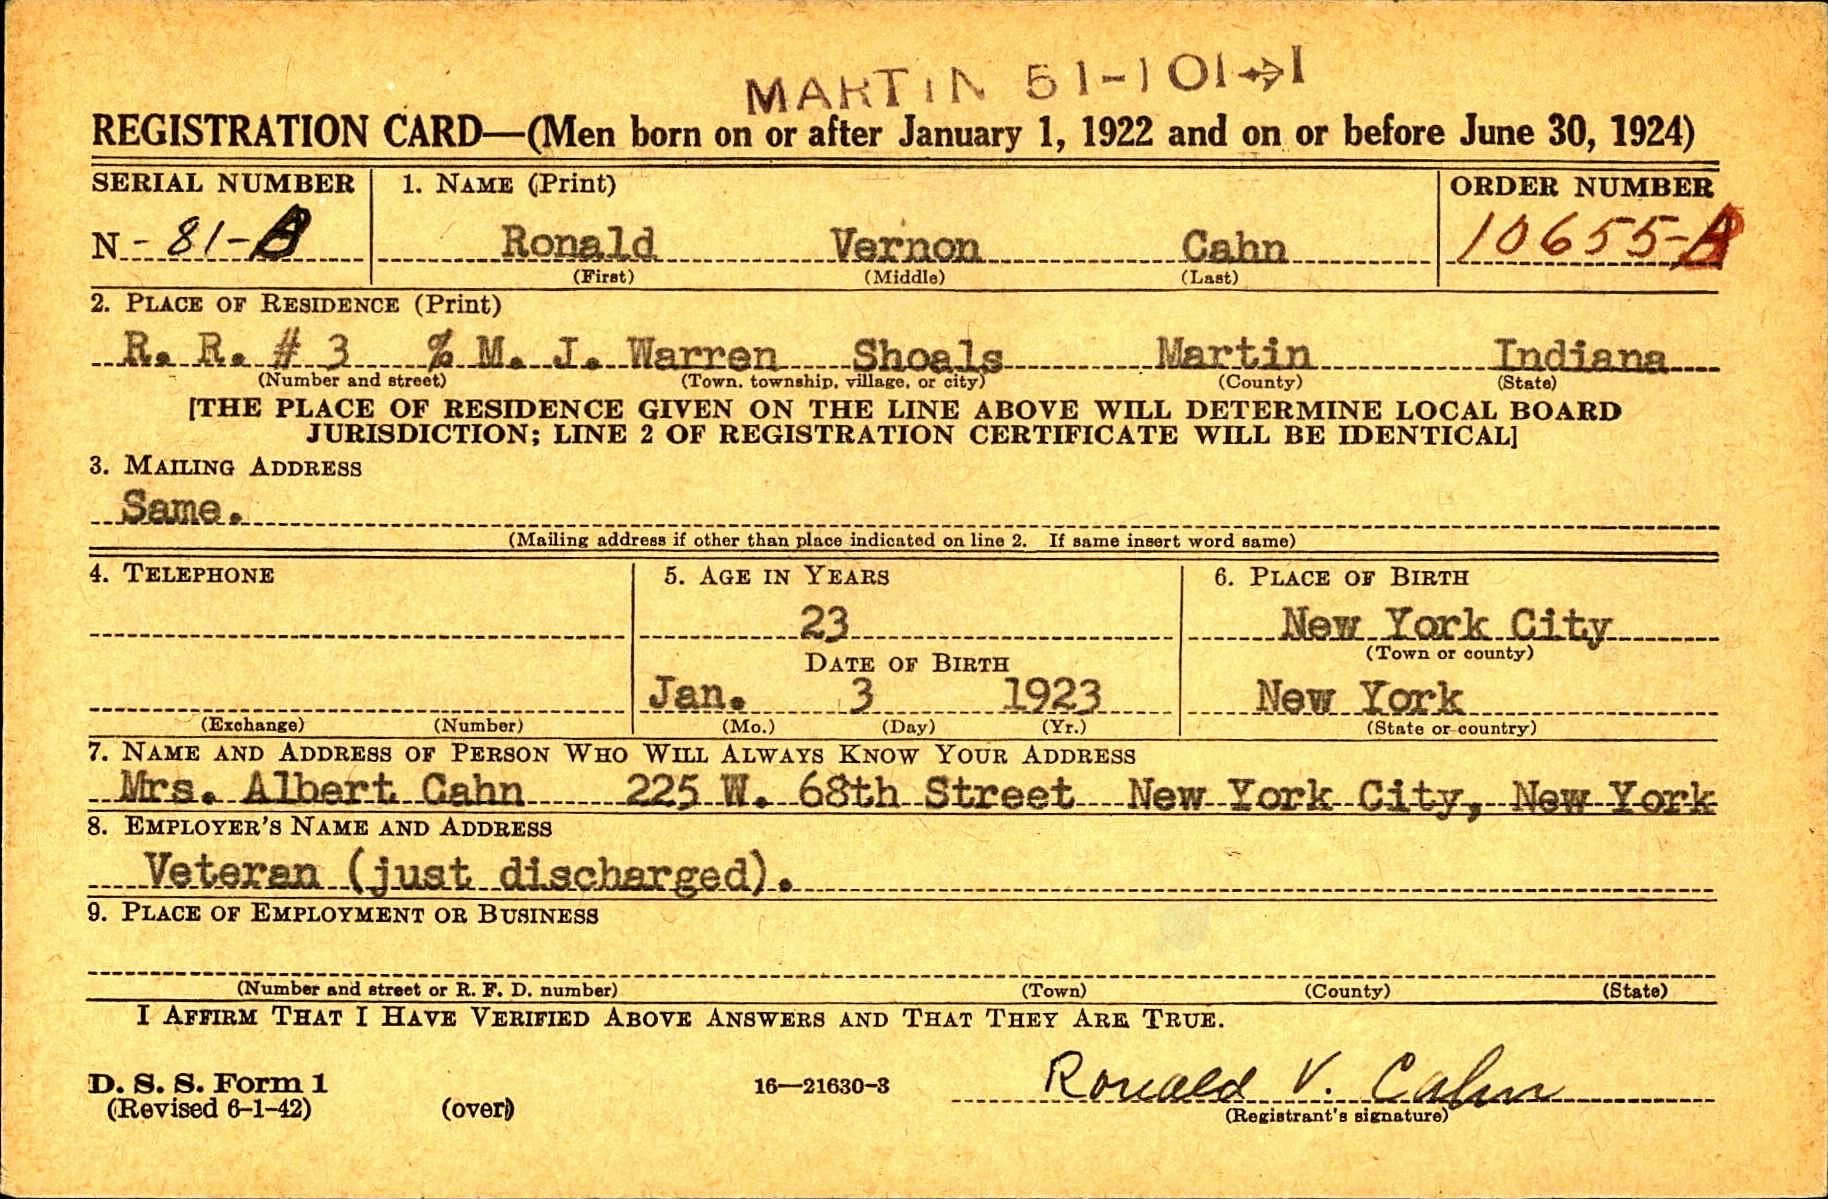 MARTIN 51-101-1
REGISTRATION CARD—(Men born on or after January 1, 1922 and on or before June 30, 1924)
SERIAL NUMBER 1. NAME (Print) ORDER NUMBER
N - 81-A Ronald Vernon Cahn 10655-A
(First) (Middle) (Last)
2. PLACE OF RESIDENCE (Print)
R. R. # 3 % M. J. Warren Shoals Martin Indiana
(Number and street) (Town, township, village, or city) (County) (State)
[THE PLACE OF RESIDENCE GIVEN ON THE LINE ABOVE WILL DETERMINE LOCAL BOARD
JURISDICTION; LINE 2 OF REGISTRATION CERTIFICATE WILL BE IDENTICAL]
3. MAILING ADDRESS
Same.
(Mailing address if other than place indicated on line 2. If same insert word same)
4. TELEPHONE 5. AGE IN YEARS 6. PLACE OF BIRTH
23 New York City
(Town or county)
DATE OF BIRTH
Jan. 3 1923 New York
(Exchange) (Number) (Mo.) (Day) (Yr.) (State or country)
7. NAME AND ADDRESS OF PERSON WHO WILL ALWAYS KNOW YOUR ADDRESS
Mrs. Albert Cahn 225 W. 68th Street New York City, New York
8. EMPLOYER'S NAME AND ADDRESS
Veteran (just discharged).
9. PLACE OF EMPLOYMENT OR BUSINESS
(Number and street or R. F. D. number) (Town) (County) (State)
I AFFIRM THAT I HAVE VERIFIED ABOVE ANSWERS AND THAT THEY ARE TRUE.
D. S. S. Form 1
(Revised 6-1-42) (over) 16—21630-3 Ronald V. Cahn
(Registrant's signature)